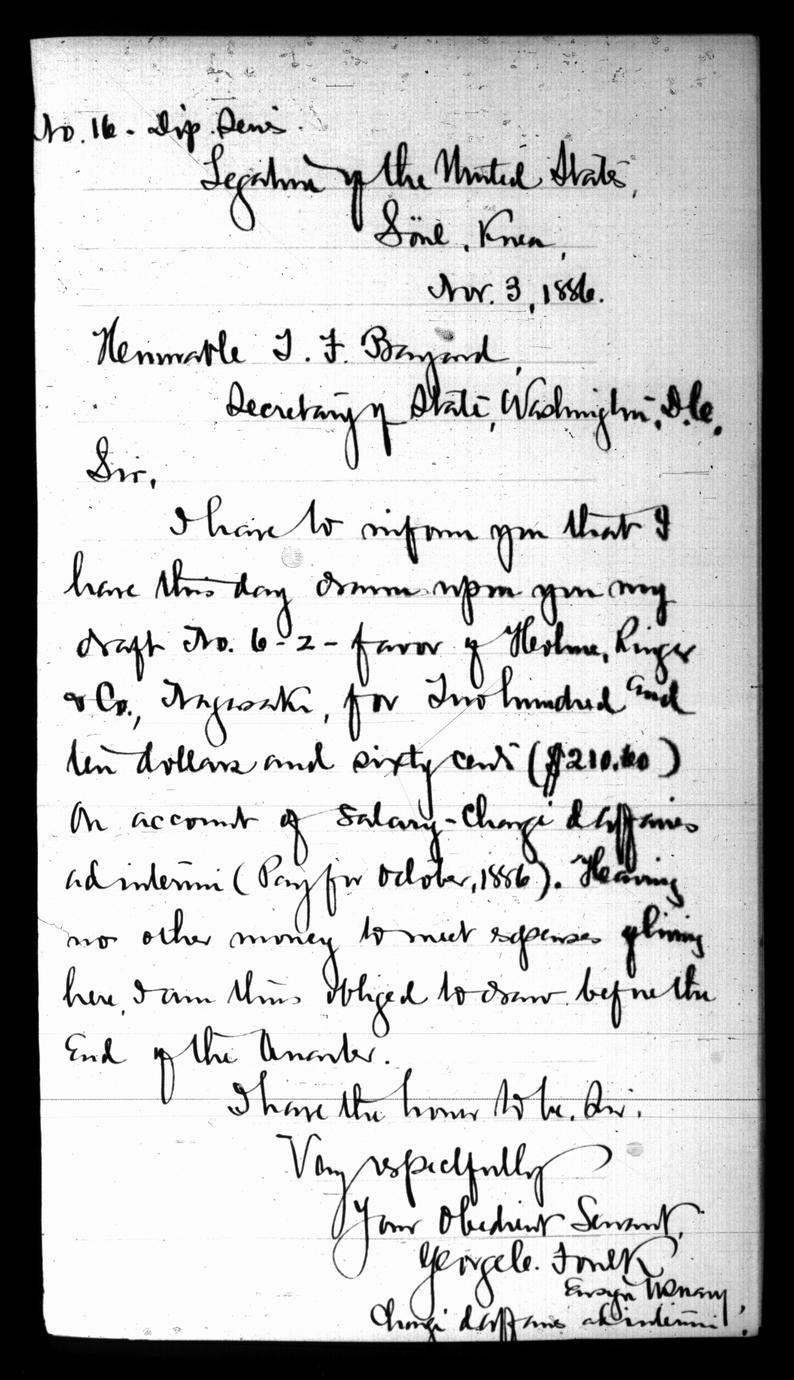 No. 16 - Dip. Series.
Legation of the United States,
Söul, Korea,
Nov. 3, 1886.
Honorable T. F. Bayard,
Secretary of State, Washington, D.C.
Sir,
I have to inform you that I
have this day drawn upon you my
draft No. 6-2- favor of Holme, Ringer
& Co., Nagasaki, for Two hundred and
ten dollars and sixty cents ($210.60)
On account of Salary - Chargé d'affaires
ad interim (Pay for October, 1886). Having
no other money to meet expenses of living
here, I am thus obliged to draw before the
End of the Quarter.
I have the honor to be, Sir,
Very respectfully
Your Obedient Servant,
George C. Foulk
Ensign U.S. Navy,
Chargé d'affaires ad interim